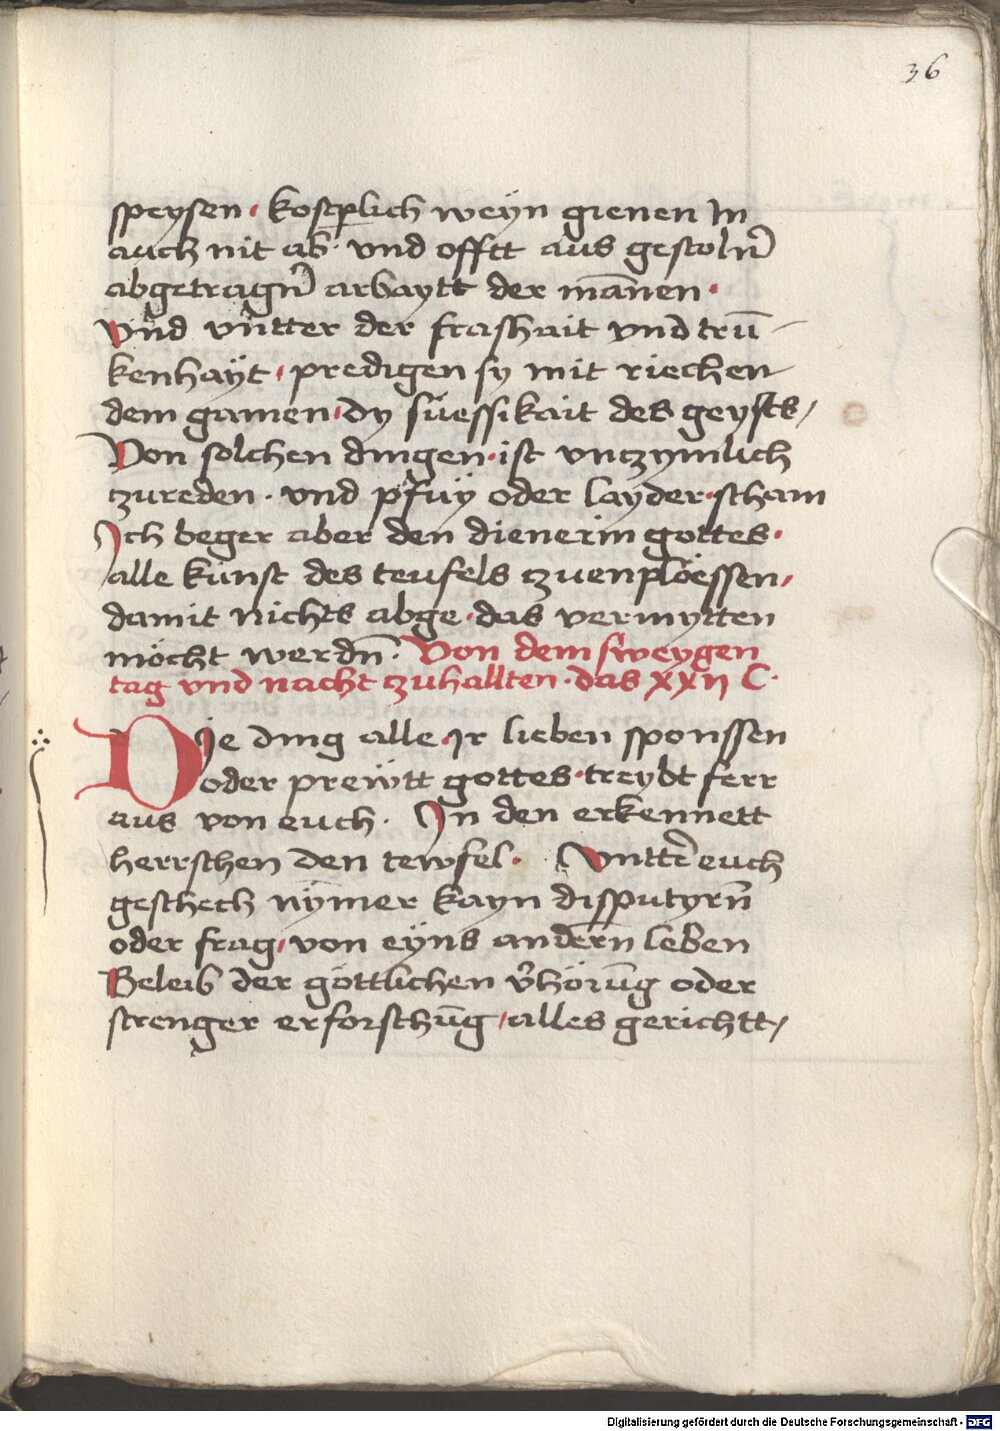 36
speysen · kosperlich weyn gienen In
auch nit ab · vnd offtt aus gestolnʼ
abgetragnʼ arbaytt der man̄en ·
Vnd vntter der frashait vnd trū-
kenhaÿt · predigen sy mit riechen
dem gamen · dy süessikait des geysts /
Von solchen dingen · ist vnczymlich
czureden · vnd pfuÿ oder layder · scham
Ich beger aber den dienerin gottes ·
alle kunst des teufels czuenplöessen /
damit nichts abge · das vermytten
möcht werdn̄ · Von dem sweygen
tag vnd nacht czuhallten · das xxij C ·
Die ding alle · Ir lieben sponssen
oder prewtt gottes · treybt ferr
aus von euch · In den erkennett
herrschen den tewfel · Vntterʼ euch
geschech nymer kayn disputyrn̄
oder frag / von eyns andern̄ leben
Beleib der göttlichen vʼhörūg oder
strenger erforschūg / alles gerichtt /
Digitalisierung gefördert durch die Deutsche Forschungsgemeinschaft - DFG